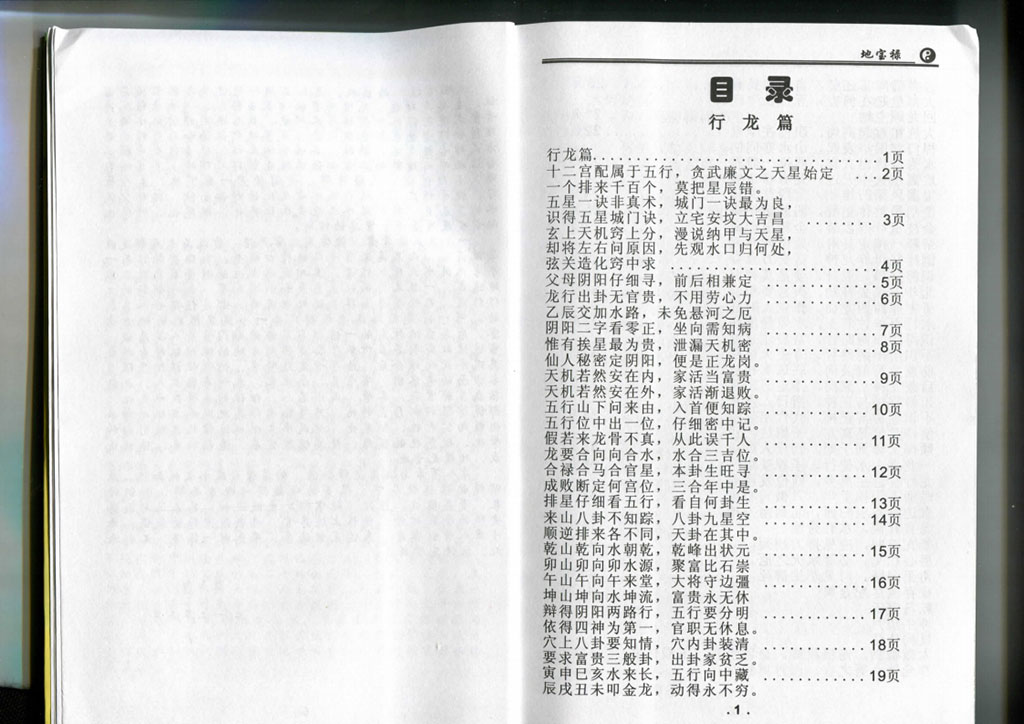 地宝禄
目 录
行 龙 篇
行龙篇..................................1页
十二宫配属于五行，贪武廉文之天星始定 ...2页
一个排来千百个，莫把星辰错。
五星一诀非真术，城门一诀最为良，
识得五星城门诀，立宅安坟大吉昌 ........3页
玄上天机窍上分，漫说纳甲与天星，
却将左右问原因，先观水口归何处，
弦关造化窍中求 ........................4页
父母阴阳仔细寻，前后相兼定 ............5页
龙行出卦无官贵，不用劳心力 ............6页
乙辰交加水路，未免悬河之厄
阴阳二字看零正，坐向需知病 ............7页
惟有挨星最为贵，泄漏天机密 ............8页
仙人秘密定阴阳，便是正龙岗。
天机若然安在内，家活当富贵 ............9页
天机若然安在外，家活渐退败。
五行山下问来由，入首便知踪 ............10页
五行位中出一位，仔细密中记。
假若来龙骨不真，从此误千人 ............11页
龙要合向向合水，水合三吉位。
合禄合马合官星，本卦生旺寻 ............12页
成败断定何宫位，三合年中是。
排星仔细看五行，看自何卦生 ............13页
来山八卦不知踪，八卦九星空 ............14页
顺逆排来各不同，天卦在其中。
乾山乾向水朝乾，乾峰出状元 ............15页
卯山卯向卯水源，聚富比石崇
午山午向午来堂，大将守边疆 ............16页
坤山坤向水坤流，富贵永无休
辩得阴阳两路行，五行要分明 ............17页
依得四神为第一，官职无休息。
穴上八卦要知情，穴内卦装清 ............18页
要求富贵三般卦，出卦家贫乏。
寅申巳亥水来长，五行向中藏 ............19页
辰戌丑未叩金龙，动得永不穷。
.1.